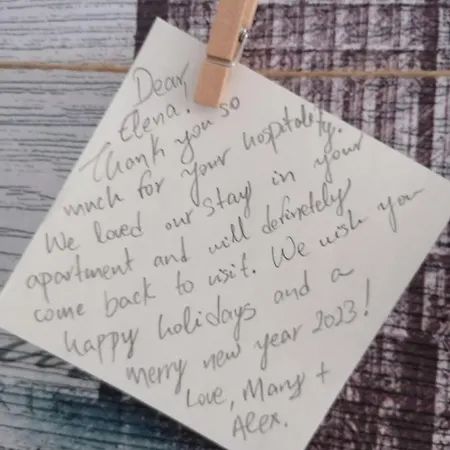 Dear
Elena.
Thank you so
much for your hospitality.
We loved our stay in your
apartment and will definetely
come back to visit. We wish you
happy holidays and a
merry new year 2023!
Love, Mary +
Alex.